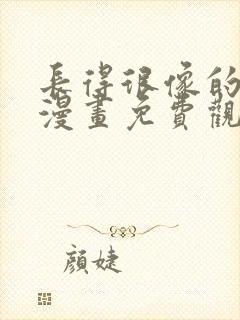 長得很像的
漫畫免費觀
顏婕